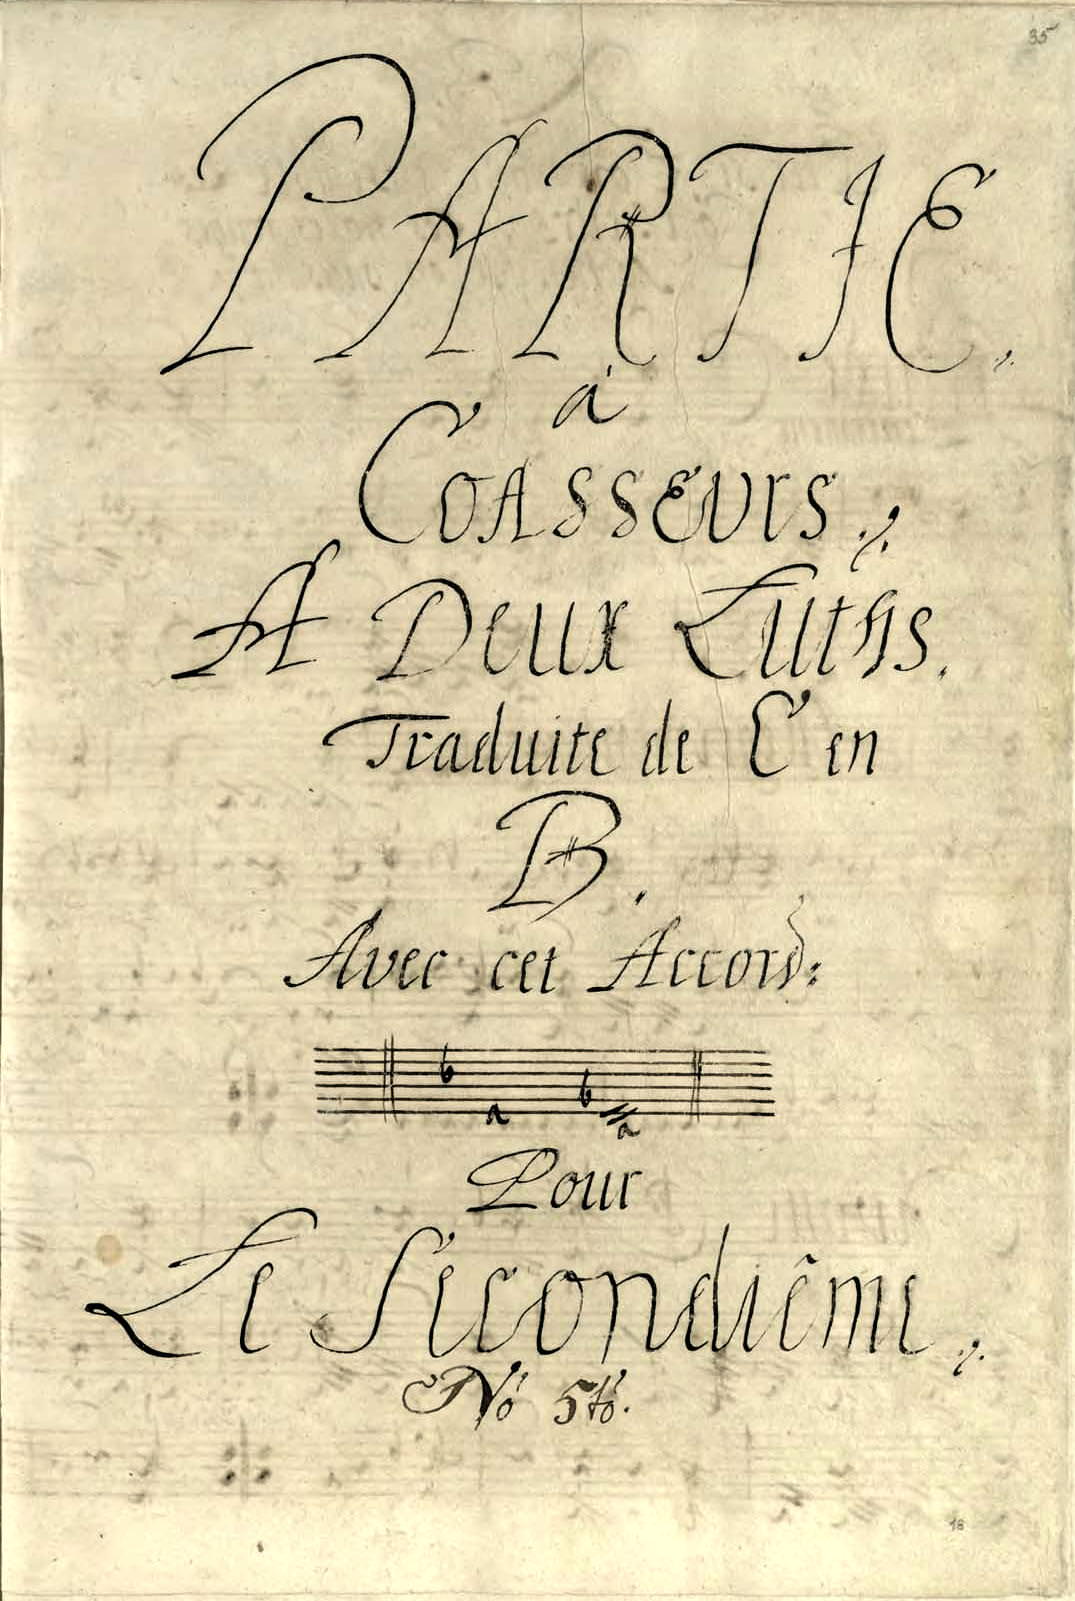 35
PARTIE ⁒
à
COASSEURS ⁒
A Deux Luths.
Traduite de C en
B.
Avec cet Accord:
b a b a
Pour
Le Secondiême ⁒
No 5to.
18